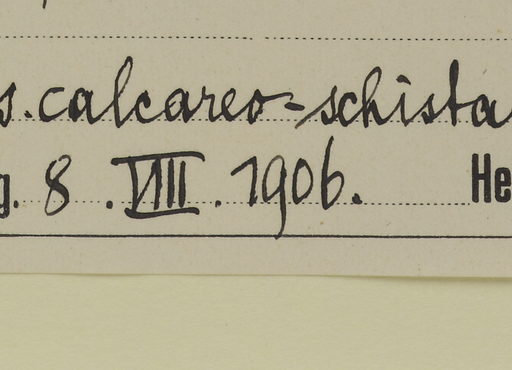 s. calcareo-schista
g. 8. VIII. 1906. He